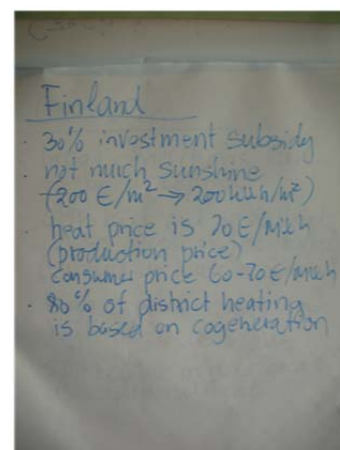 Finland
· 30% investment subsidy
· not much sunshine
(200 €/m² → 200 kWh/m²)
· heat price is 20 €/MWh
(production price)
consumer price 60-70 €/MWh
· 80% of district heating
is based on cogeneration